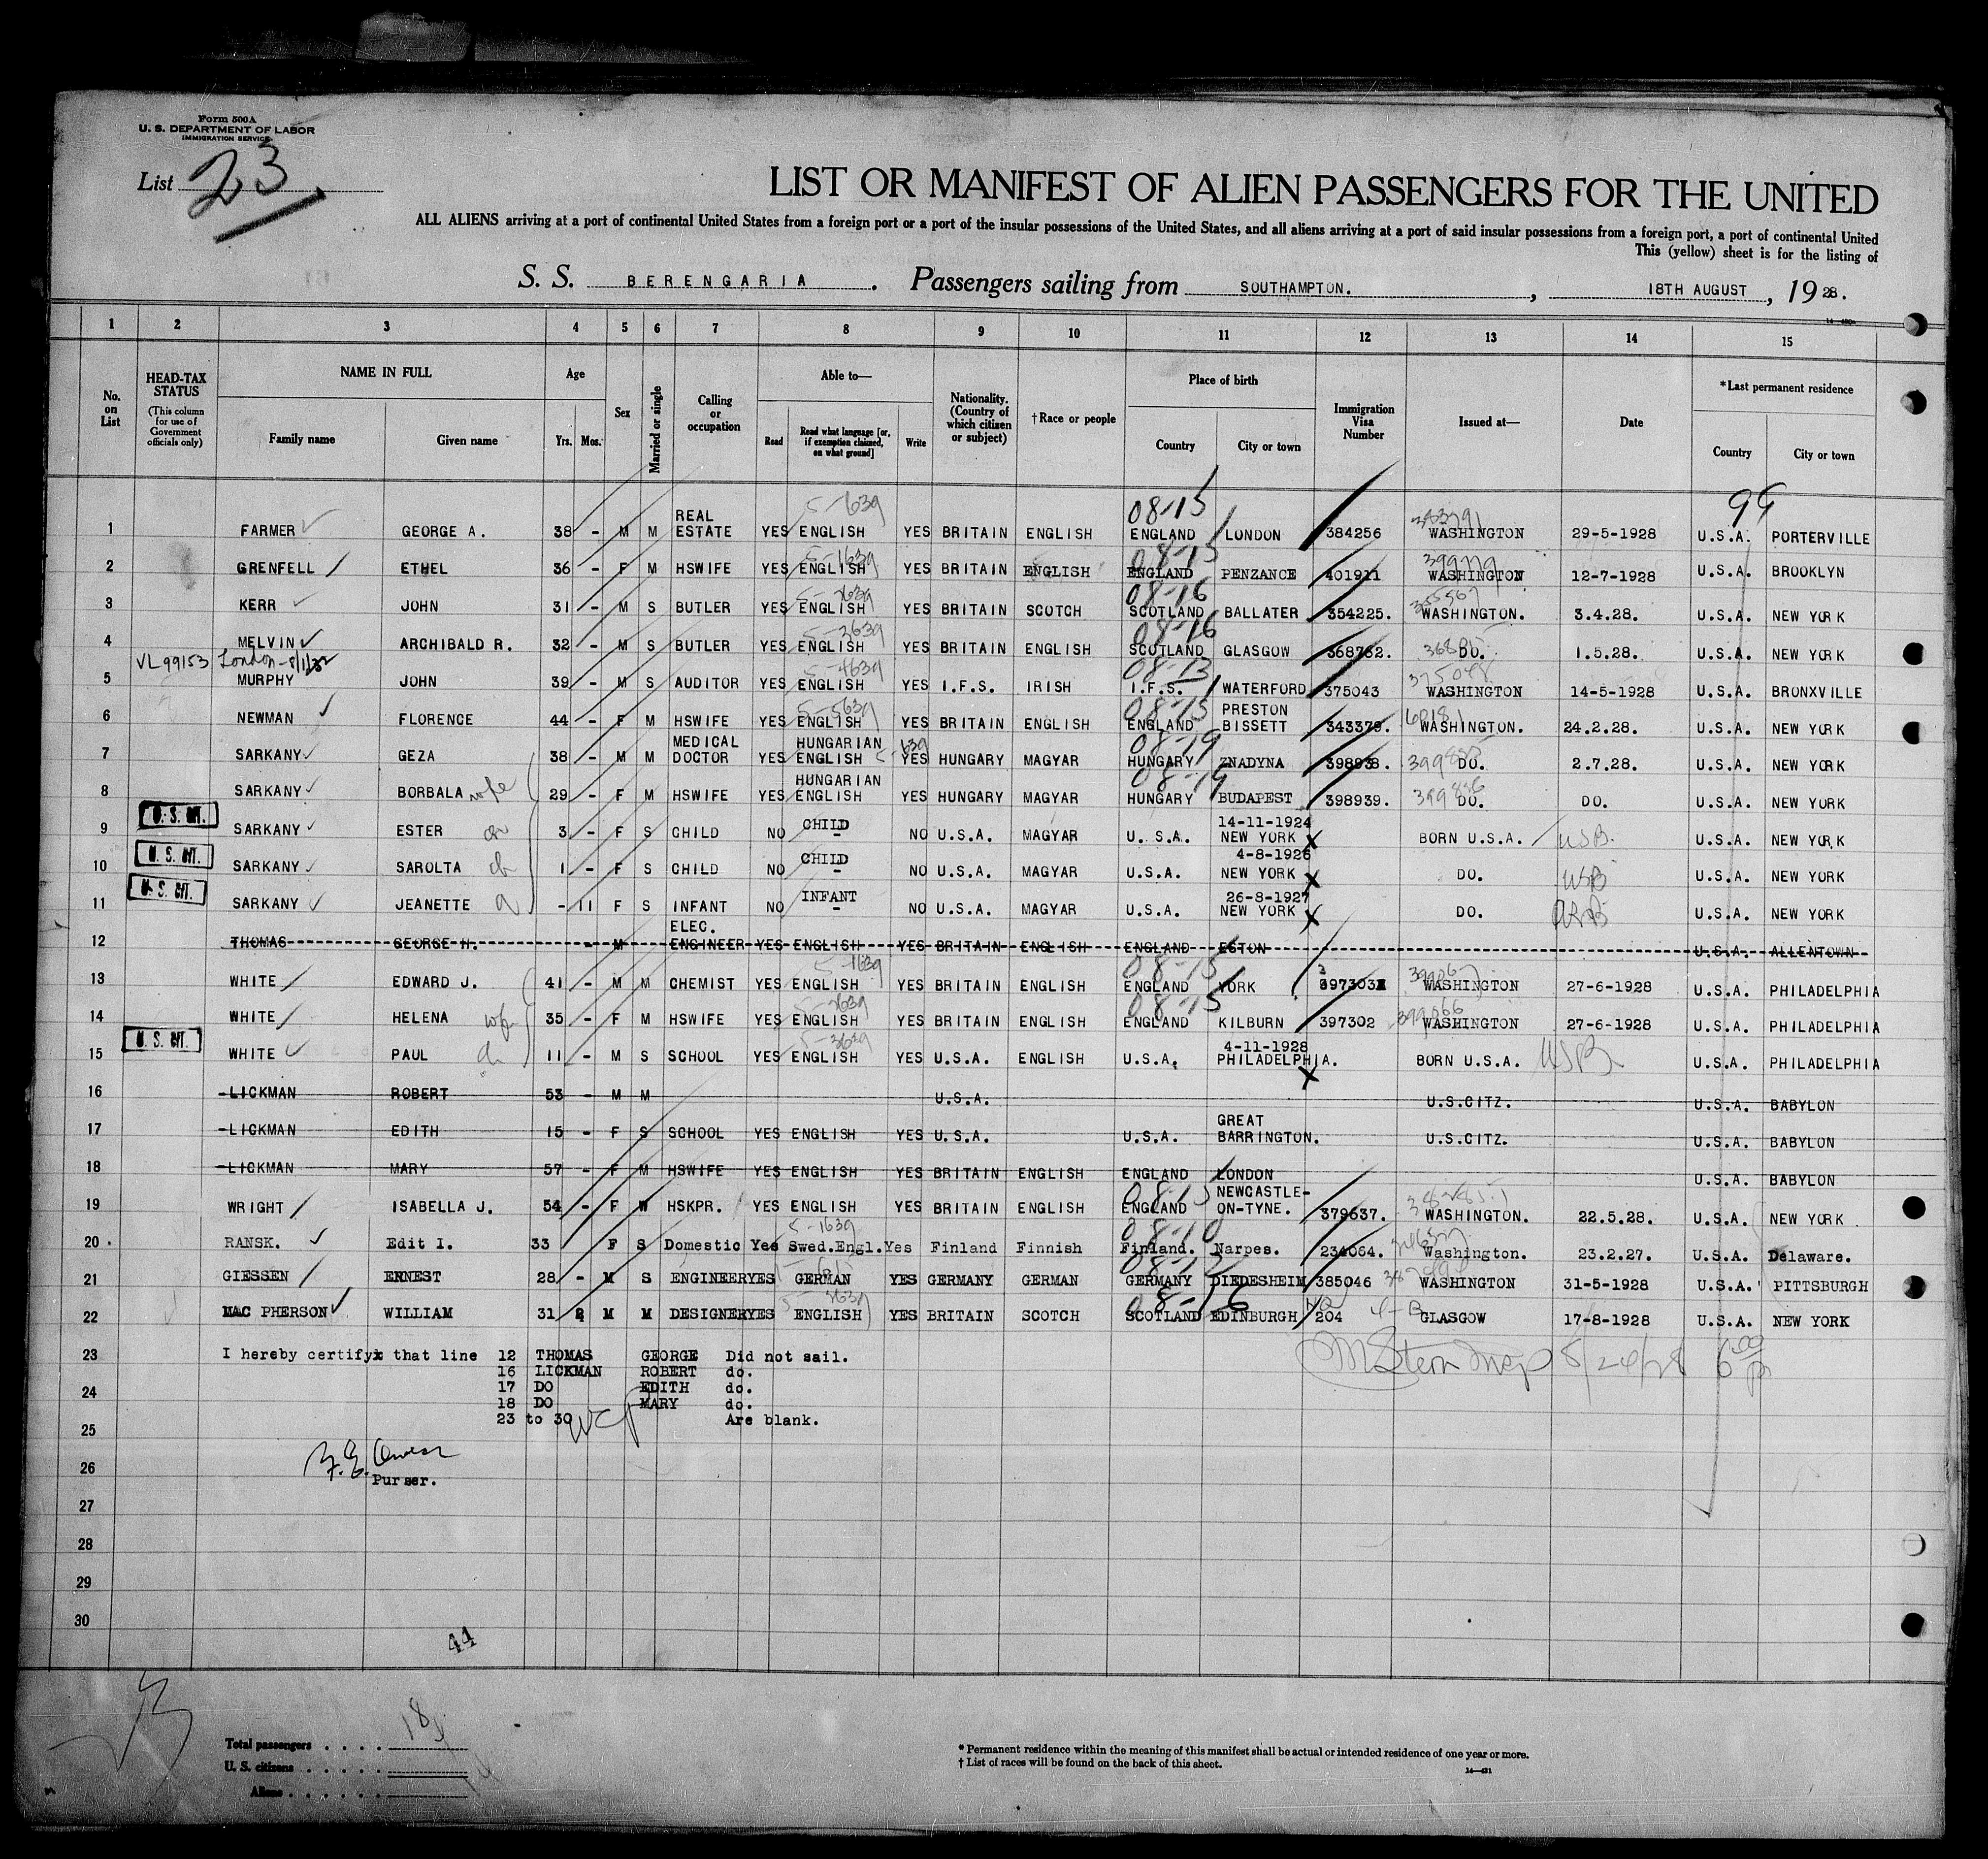 Form 500A
U. S. DEPARTMENT OF LABOR
IMMIGRATION SERVICE
List 23
LIST OR MANIFEST OF ALIEN PASSENGERS FOR THE UNITED
ALL ALIENS arriving at a port of continental United States from a foreign port or a port of the insular possessions of the United States, and all aliens arriving at a port of said insular possessions from a foreign port, a port of continental United
This (yellow) sheet is for the listing of
S. S. BERENGARIA. Passengers sailing from SOUTHAMPTON., 18TH AUGUST, 1928.
1 2 3 4 5 6 7 8 9 10 11 12 13 14 15
No. on List
HEAD-TAX STATUS
(This column for use of Government officials only)
NAME IN FULL
Family name Given name
Age
Yrs. Mos.
Sex
Married or single
Calling or occupation
Able to—
Read Read what language [or, if exemption claimed, on what ground] Write
Nationality. (Country of which citizen or subject)
†Race or people
Place of birth
Country City or town
Immigration Visa Number
Issued at—
Date
*Last permanent residence
Country City or town
99
1 FARMER GEORGE A. 38 - M M REAL ESTATE YES ENGLISH YES BRITAIN ENGLISH 08-15 ENGLAND LONDON 384256 WASHINGTON 29-5-1928 U.S.A. PORTERVILLE
2 GRENFELL ETHEL 36 - F M HSWIFE YES ENGLISH YES BRITAIN ENGLISH 08-15 ENGLAND PENZANCE 401911 WASHINGTON 12-7-1928 U.S.A. BROOKLYN
3 KERR JOHN 31 - M S BUTLER YES ENGLISH YES BRITAIN SCOTCH 08-16 SCOTLAND BALLATER 354225. WASHINGTON. 3.4.28. U.S.A. NEW YORK
4 MELVIN ARCHIBALD R. 32 - M S BUTLER YES ENGLISH YES BRITAIN ENGLISH 08-16 SCOTLAND GLASGOW 368762. DO. 1.5.28. U.S.A. NEW YORK
VL99153 London-
5 MURPHY JOHN 39 - M S AUDITOR YES ENGLISH YES I.F.S. IRISH 08-13 I.F.S. WATERFORD 375043 WASHINGTON 14-5-1928 U.S.A. BRONXVILLE
6 NEWMAN FLORENCE 44 - F M HSWIFE YES ENGLISH YES BRITAIN ENGLISH 08-15 ENGLAND PRESTON BISSETT 343379. WASHINGTON. 24.2.28. U.S.A. NEW YORK
7 SARKANY GEZA 38 - M M MEDICAL DOCTOR YES HUNGARIAN ENGLISH YES HUNGARY MAGYAR 08-19 HUNGARY ZNADYNA 398938. DO. 2.7.28. U.S.A. NEW YORK
8 SARKANY BORBALA wife 29 - F M HSWIFE YES HUNGARIAN ENGLISH YES HUNGARY MAGYAR 08-19 HUNGARY BUDAPEST 398939. DO. DO. U.S.A. NEW YORK
9 U.S. CIT. SARKANY ESTER ch 3 - F S CHILD NO CHILD - NO U.S.A. MAGYAR U.S.A. 14-11-1924 NEW YORK X BORN U.S.A. USB. U.S.A. NEW YORK
10 U.S. CIT. SARKANY SAROLTA ch 1 - F S CHILD NO CHILD - NO U.S.A. MAGYAR U.S.A. 4-8-1926 NEW YORK X DO. USB U.S.A. NEW YORK
11 U.S. CIT. SARKANY JEANETTE - 11 F S INFANT NO INFANT - NO U.S.A. MAGYAR U.S.A. 26-8-1927 NEW YORK X DO. U.S.A. NEW YORK
12 THOMAS GEORGE H. - M ELEC. ENGINEER YES ENGLISH YES BRITAIN ENGLISH ENGLAND ESTON U.S.A. ALLENTOWN
13 WHITE EDWARD J. 41 - M M CHEMIST YES ENGLISH YES BRITAIN ENGLISH 08-15 ENGLAND YORK WASHINGTON 27-6-1928 U.S.A. PHILADELPHIA
14 WHITE HELENA wife 35 - F M HSWIFE YES ENGLISH YES BRITAIN ENGLISH 08-15 ENGLAND KILBURN 397302 WASHINGTON 27-6-1928 U.S.A. PHILADELPHIA
15 U.S. CIT. WHITE PAUL ch 11 - M S SCHOOL YES ENGLISH YES U.S.A. ENGLISH U.S.A. 4-11-1928 PHILADELPHIA. X BORN U.S.A. USB U.S.A. PHILADELPHIA
16 LICKMAN ROBERT 53 - M M U.S.A. U.S.CITZ. U.S.A. BABYLON
17 LICKMAN EDITH 15 - F S SCHOOL YES ENGLISH YES U.S.A. U.S.A. GREAT BARRINGTON. U.S.CITZ. U.S.A. BABYLON
18 LICKMAN MARY 57 - F M HSWIFE YES ENGLISH YES BRITAIN ENGLISH ENGLAND LONDON U.S.A. BABYLON
19 WRIGHT ISABELLA J. 54 - F W HSKPR. YES ENGLISH YES BRITAIN ENGLISH 08-15 ENGLAND NEWCASTLE-ON-TYNE. 379637. WASHINGTON. 22.5.28. U.S.A. NEW YORK
20 RANSK. Edit I. 33 F S Domestic Yes Swed.Engl. Yes Finland Finnish 08-10 Finland. Narpes. 234064. Washington. 23.2.27. U.S.A. Delaware.
21 GIESSEN ERNEST 28 - M S ENGINEER YES GERMAN YES GERMANY GERMAN 08-12 GERMANY DIEDESHEIM 385046 WASHINGTON 31-5-1928 U.S.A. PITTSBURGH
22 MAC PHERSON WILLIAM 31 M M DESIGNER YES ENGLISH YES BRITAIN SCOTCH 08-16 SCOTLAND EDINBURGH 204 GLASGOW 17-8-1928 U.S.A. NEW YORK
23 I hereby certifyx that line 12 THOMAS GEORGE Did not sail.
16 LICKMAN ROBERT do.
24 17 DO EDITH do.
18 DO MARY do.
25 23 to 30 Are blank.
26 Purser.
27
28
29
30
44
Total passengers . . . . 18
U. S. citizens . . . . .
Aliens . . . . . .
* Permanent residence within the meaning of this manifest shall be actual or intended residence of one year or more.
† List of races will be found on the back of this sheet.